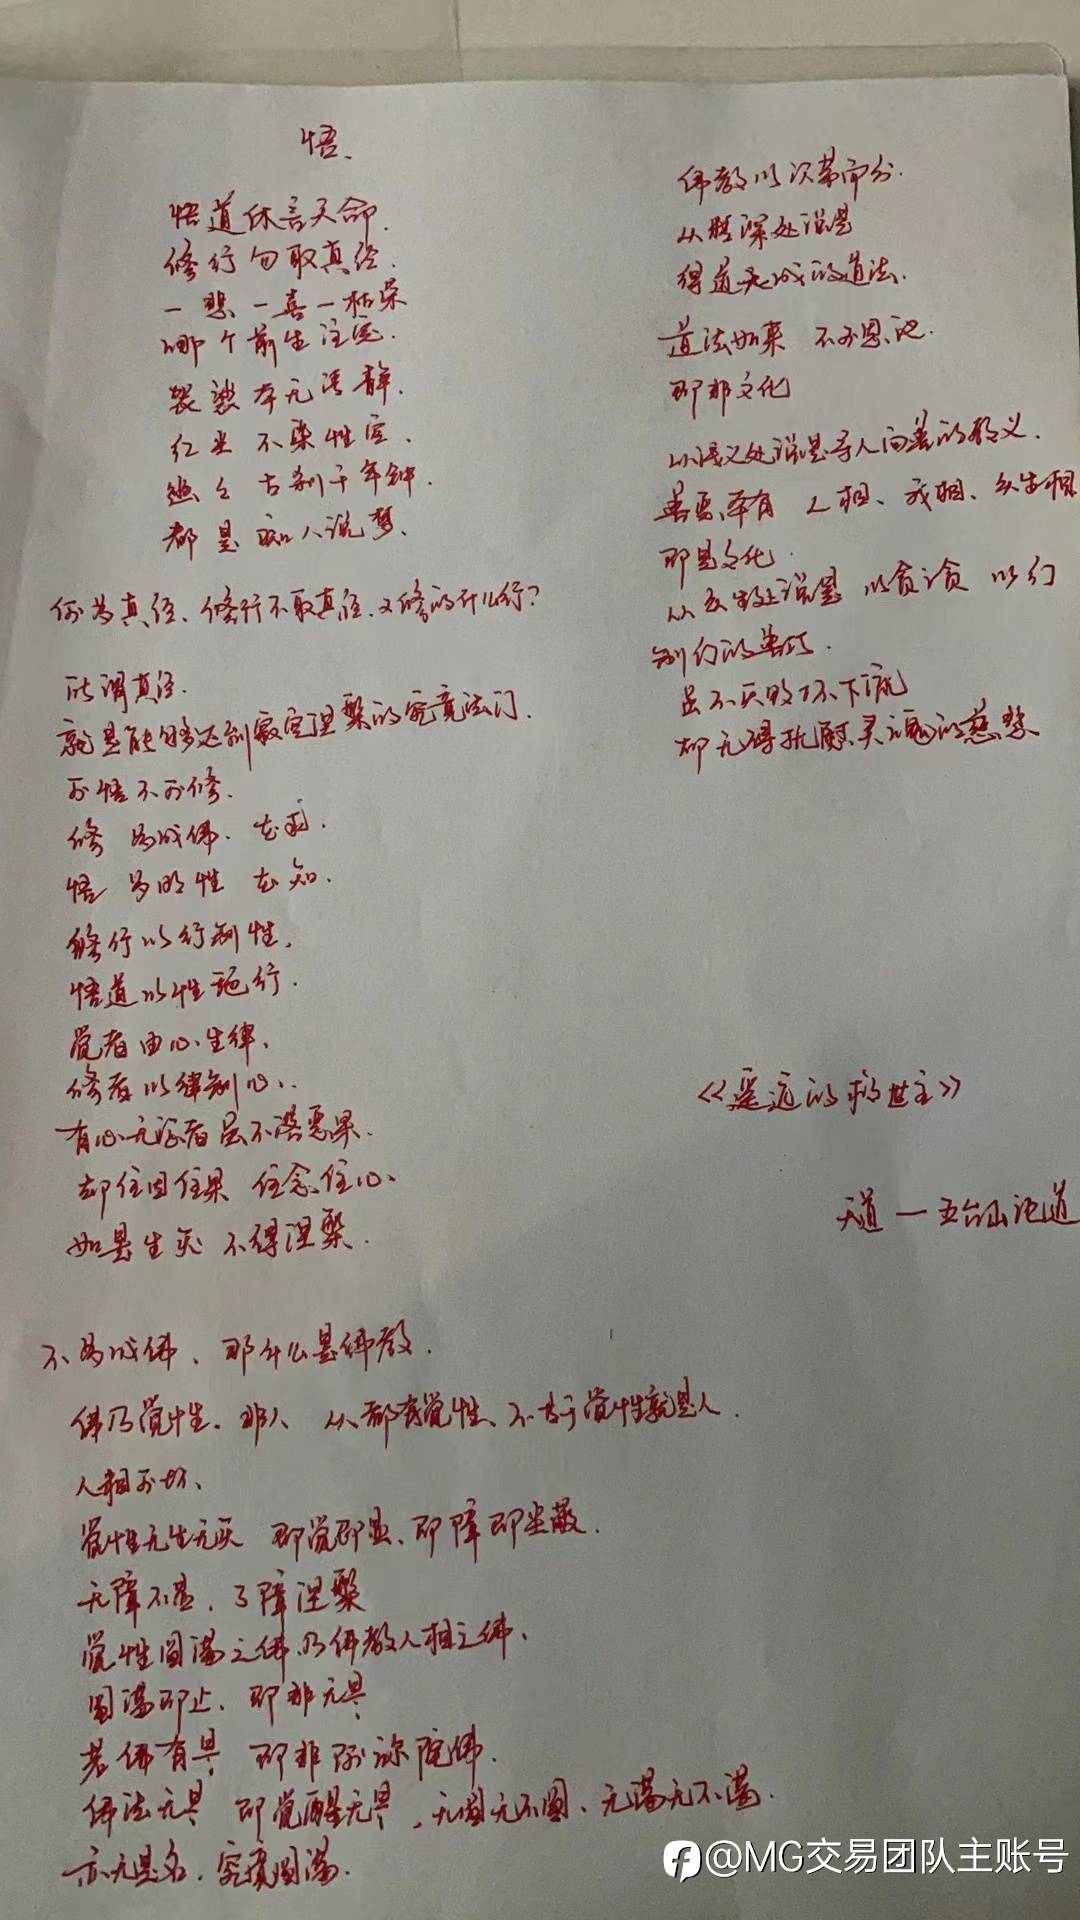 悟、
悟道休言天命.
修行勿取真经.
一悲一喜一枯荣
哪个前生注定.
袈裟本无清静.
红尘不染性空.
幽幽古刹千年钟.
都是痴人说梦.
何为真经、修行不取真经.又修的什么行?
所谓真经.
就是能够达到寂空涅槃的究竟法门.
可悟不可修.
修 为成佛. 在求.
悟 为明性 在知.
修行以行制性.
悟道以性施行.
觉者由心生律、
修者以律制心.
有心无谤者虽不落恶果.
却住因住果 住念住心、
如是生灭 不得涅槃.
不为成佛、那什么是佛教.
佛乃觉性、非人 人都有觉性、不等于觉性就是人.
人相可坏、
觉性无生无灭 即觉即显、即障即尘蔽.
无障不显. 了障涅槃
觉性圆满之佛.乃佛教人相之佛、
圆满即止、即非无量
若佛有量 即非阿弥陀佛.
佛法无量 即觉醒无量、无圆无不圆、无满无不满.
亦无是名.究竟圆满.
佛教以次第而分.
从胜深处说是
得道天成的道法.
道法如来 不可思议.
即非文化
以浅义处说是导人向善的教义.
善恶本有 人相、我相、众生相
即是文化.
从众生处说是 以贪制贪 以幻
制幻的善巧.
虽不灭败坏下流
却无碍抚慰灵魂的慈悲
《遥远的救世主》
天道一五台山论道
@MG交易团队主账号